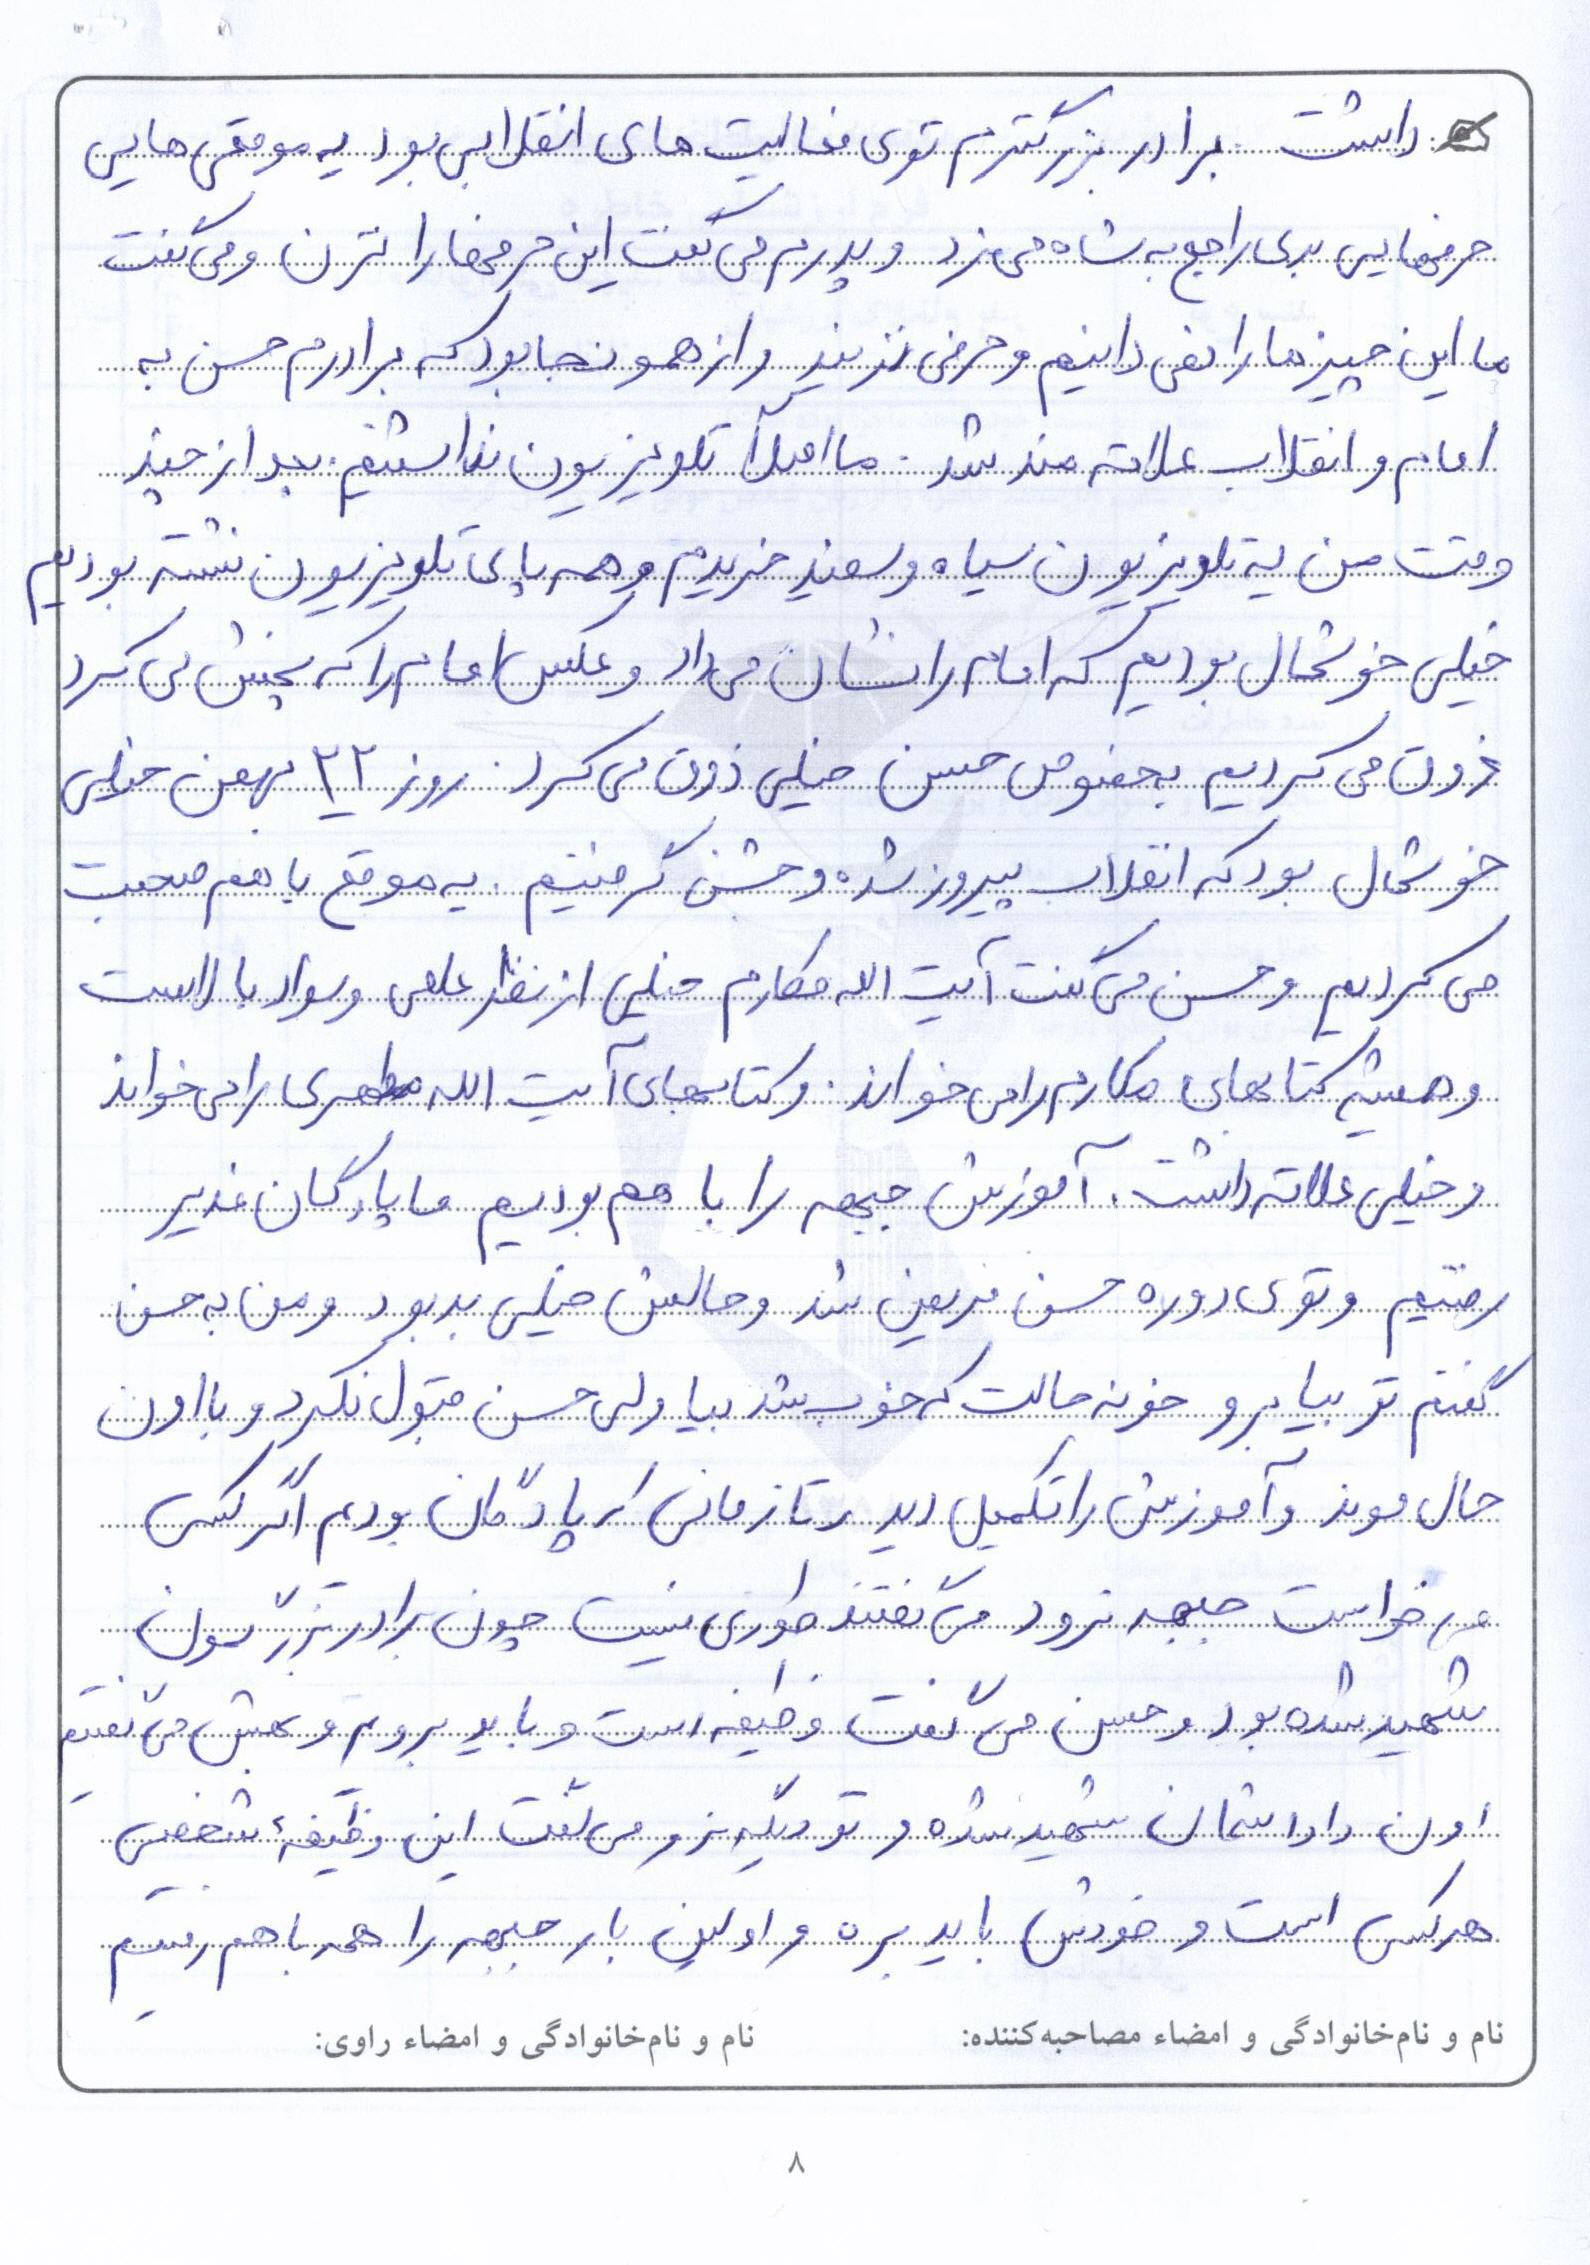 داشت . برادر بزرگترم توی فعالیت های انقلابی بود یه موقعی هایی
حرفهایی بدی راجع به شاه می زد و پدرم می گفت این حرفها را نزن و می گفت
ما این چیزها را نمی دانیم و حرفی نزنید و از همونجا بود که برادرم حسن به
امام و انقلاب علاقه مند شد . ما اصلاً تلویزیون نداشتیم . بعد از چند
وقت من یه تلویزیون سیاه و سفید خریدم و همه پای تلویزیون نشسته بودیم
خیلی خوشحال بودیم که امام را نشان می داد و عکس امام را که پخش می کرد
ذوق می کردیم بخصوص حسن خیلی ذوق می کرد . روز ۲۲ بهمن خیلی
خوشحال بود که انقلاب پیروز شده و جشن گرفتیم . یه موقع با هم صحبت
می کردیم و حسن می گفت آیت الله مکارم خیلی از نظر علمی و سواد بالاست
و همیشه کتابهای مکارم را می خواند . و کتابهای آیت الله مطهری را می خواند
و خیلی علاقه داشت . آموزش جبهه را با هم بودیم ما پادگان غدیر
رفتیم و توی دوره حسن مریض شد و حالش خیلی بد بود و من به حسن
گفتم تو بیا برو خونه حالت که خوب شد بیا ولی حسن قبول نکرد و با اون
حال موند و آموزش را تکمیل دید و تا زمانی که پادگان بودم اگر کسی
می خواست جبهه نرود می گفتند طوری نیست چون برادر بزرگمون
شهید شده بود و حسن می گفت وظیفه است و باید بروم و بهش می گفتیم
اون داداشمان شهید شده و تو دیگه نرو می گفت این وظیفهٔ شخصی
هرکسی است و خودش باید بره و اولین بار جبهه را همه با هم رفتیم
نام و نام‌خانوادگی و امضاء مصاحبه‌کننده: نام و نام‌خانوادگی و امضاء راوی:
۸